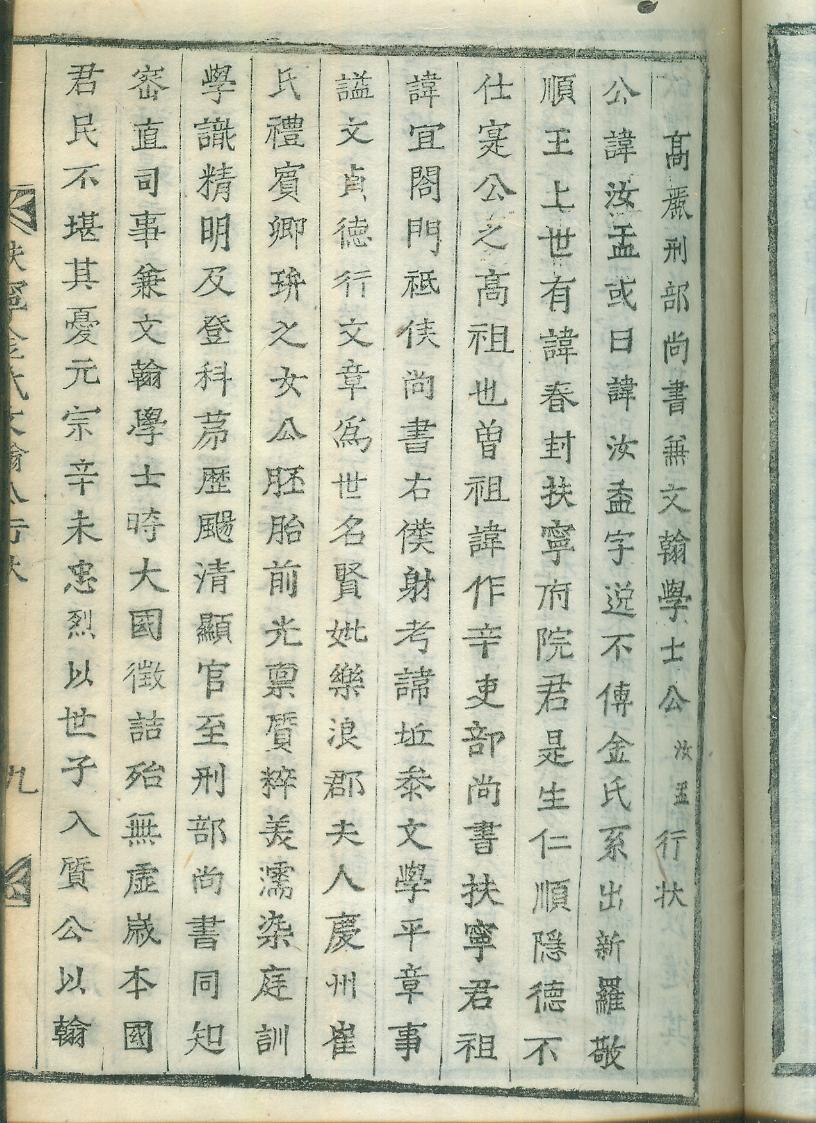 高麗刑部尚書兼文翰學士公汝盂行状
公諱汝盂或曰諱汝盉字逆不傳金氏系出新羅敬
順王上世有諱春封扶寧府院君是生仁順隱德不
仕寔公之高祖也曽祖諱作辛吏部尚書扶寧君祖
諱宜閤門祗侯尚書右僕射考諱坵叅文學平章事
謚文貞德行文章為世名賢妣樂浪郡夫人慶州崔
氏禮賓卿珤之女公胚胎前光禀質粹美濡染庭訓
學識精明及登科苐歷颺清顯官至刑部尚書同知
宻直司事兼文翰學士時大國徵詰殆無虛歲本國
君民不堪其憂元宗辛未忠烈以世子入質公以翰
扶寧金氏文翰公行状
九